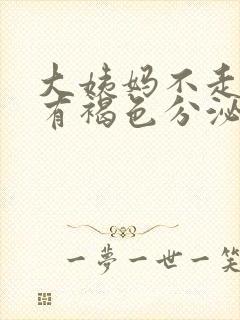 大姨妈不走
有褐色分泌
一夢一世一笑